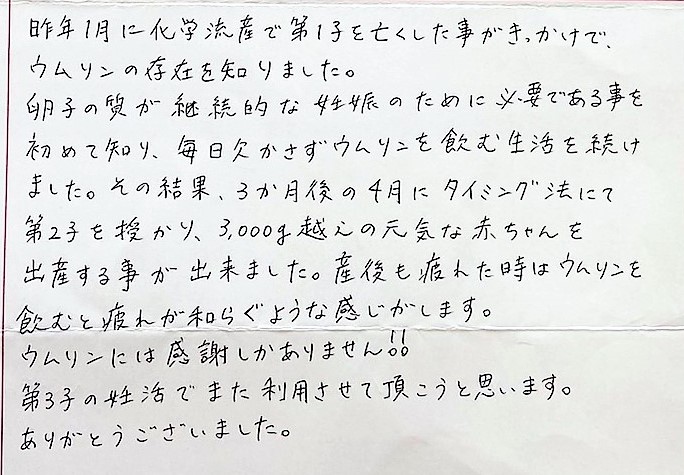 昨年1月に化学流産で第1子を亡くした事がきっかけで、
ウムリンの存在を知りました。
卵子の質が継続的な妊娠のために必要である事を
初めて知り、毎日欠かさずウムリンを飲む生活を続け
ました。その結果、3か月後の4月にタイミング法にて
第2子を授かり、3,000g越えの元気な赤ちゃんを
出産する事が出来ました。産後も疲れた時はウムリンを
飲むと疲れが和らぐような感じがします。
ウムリンには感謝しかありません!!
第3子の妊活でまた利用させて頂こうと思います。
ありがとうございました。